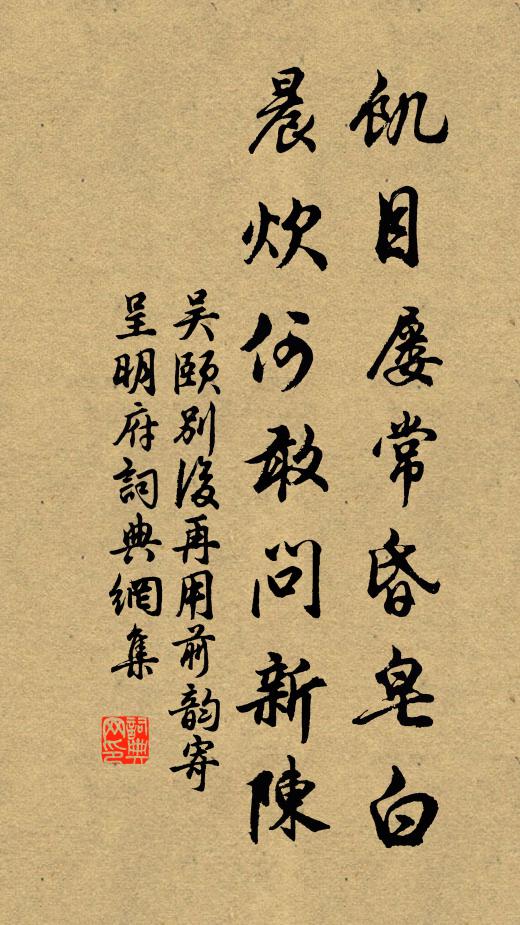 飢目屢常昏皂白
晨炊何敢問新陳
吴頤别後再用前韵寄
呈明府詞典網集
詞典
网印